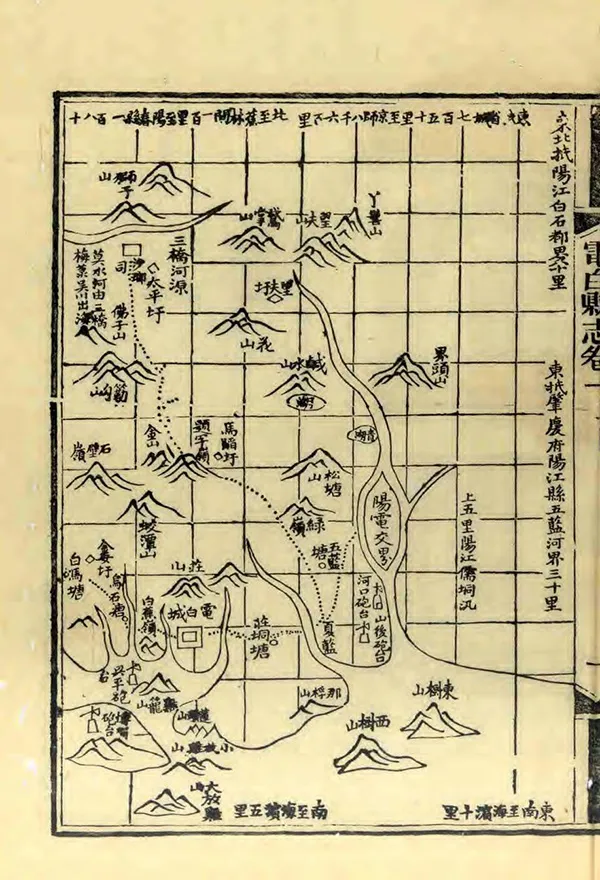 東北抵陽江白石都界六十里
東抵肇慶府陽江縣五藍河界三十里
電白縣志卷一
東北至省城七百五十里至京師八千六百里
北至蕉林閘一百里至陽春縣一百八十
東南至海濱十里
南至海濱五里
上五里陽江儒垌汛
丫髻山
望夫山
望夫圩
鵞掌山
界頭山
鹹水山
湖
青湖
花山
松塘山
綠嶺
陽電交界
五藍塘
河口砲台
山後砲台
夏藍
東樹山
西樹山
那桴山
莊山
莊垌塘
電白城
獅子山
三橋河源
沙瑯司
太平圩
莫水河由三橋
梅菉吳川出海
馬踏圩
石壁嶺
蛟潭山
白馬塘
烏石塘
白蕉嶺
興平砲台
雞籠山
小放雞山
大放雞山